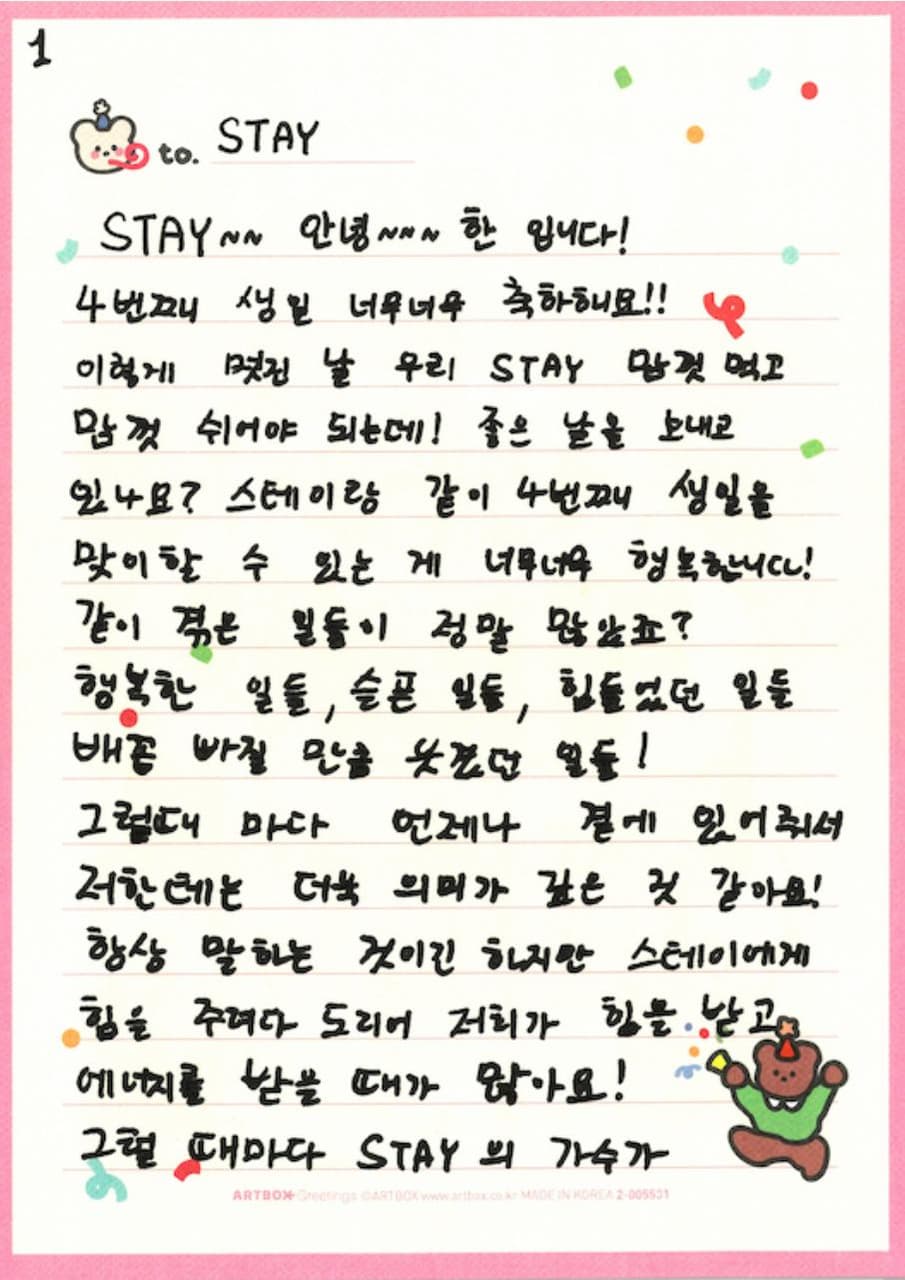 1
to. STAY
STAY~~ 안녕~~~ 한 입니다!
4번째 생일 너무너무 축하해요!!
이렇게 멋진 날 우리 STAY 맘껏 먹고
맘껏 쉬어야 되는데! 좋은 날을 보내고
있나요? 스테이랑 같이 4번째 생일을
맞이할 수 있는 게 너무너무 행복합니다!
같이 겪은 일들이 정말 많았죠?
행복한 일들, 슬픈 일들, 힘들었던 일들
배꼽 빠질 만큼 웃겼던 일들!
그럴때 마다 언제나 곁에 있어줘서
저한테는 더욱 의미가 깊은 것 같아요!
항상 말하는 것이긴 하지만 스테이에게
힘을 주려다 도리어 저희가 힘을 받고
에너지를 받을 때가 많아요!
그럴 때마다 STAY의 가수가
ARTBOX Greetings ©ARTBOX www.artbox.co.kr MADE IN KOREA 2-005531